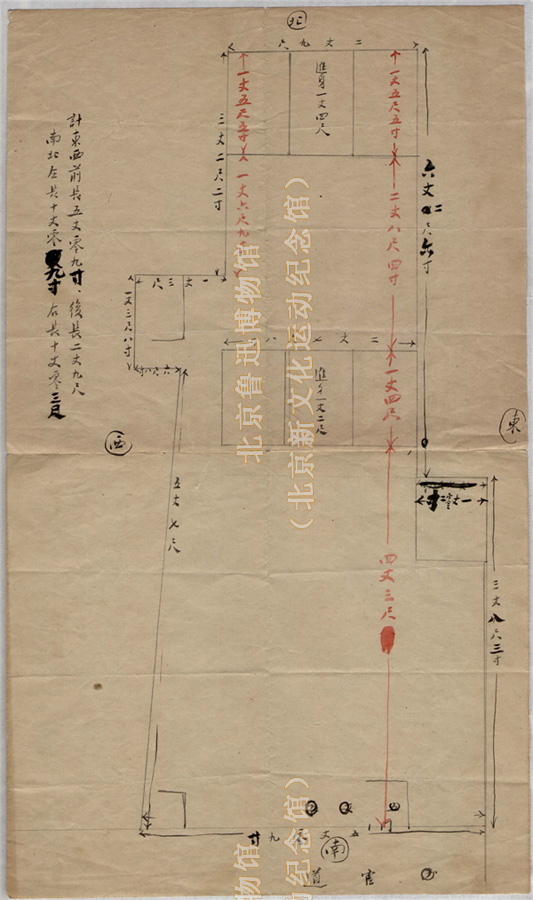 北
二丈九六
一丈五尺五寸
進身一丈四尺
一丈五尺五寸
三丈二尺二寸
一丈六尺九
二丈八尺四寸
六丈二尺六寸
計東西前長五丈零九寸、後長二丈九尺
南北左長十丈零九寸右長十丈零三尺
一丈三尺
一丈三尺八寸
二丈七八
進身一丈二尺
一丈四尺
東
西
五丈七尺
四丈三尺
一丈零二
三丈八尺三寸
五丈零九寸
南
官道
北京鲁迅博物馆
（北京新文化运动纪念馆）
物馆
纪念馆）